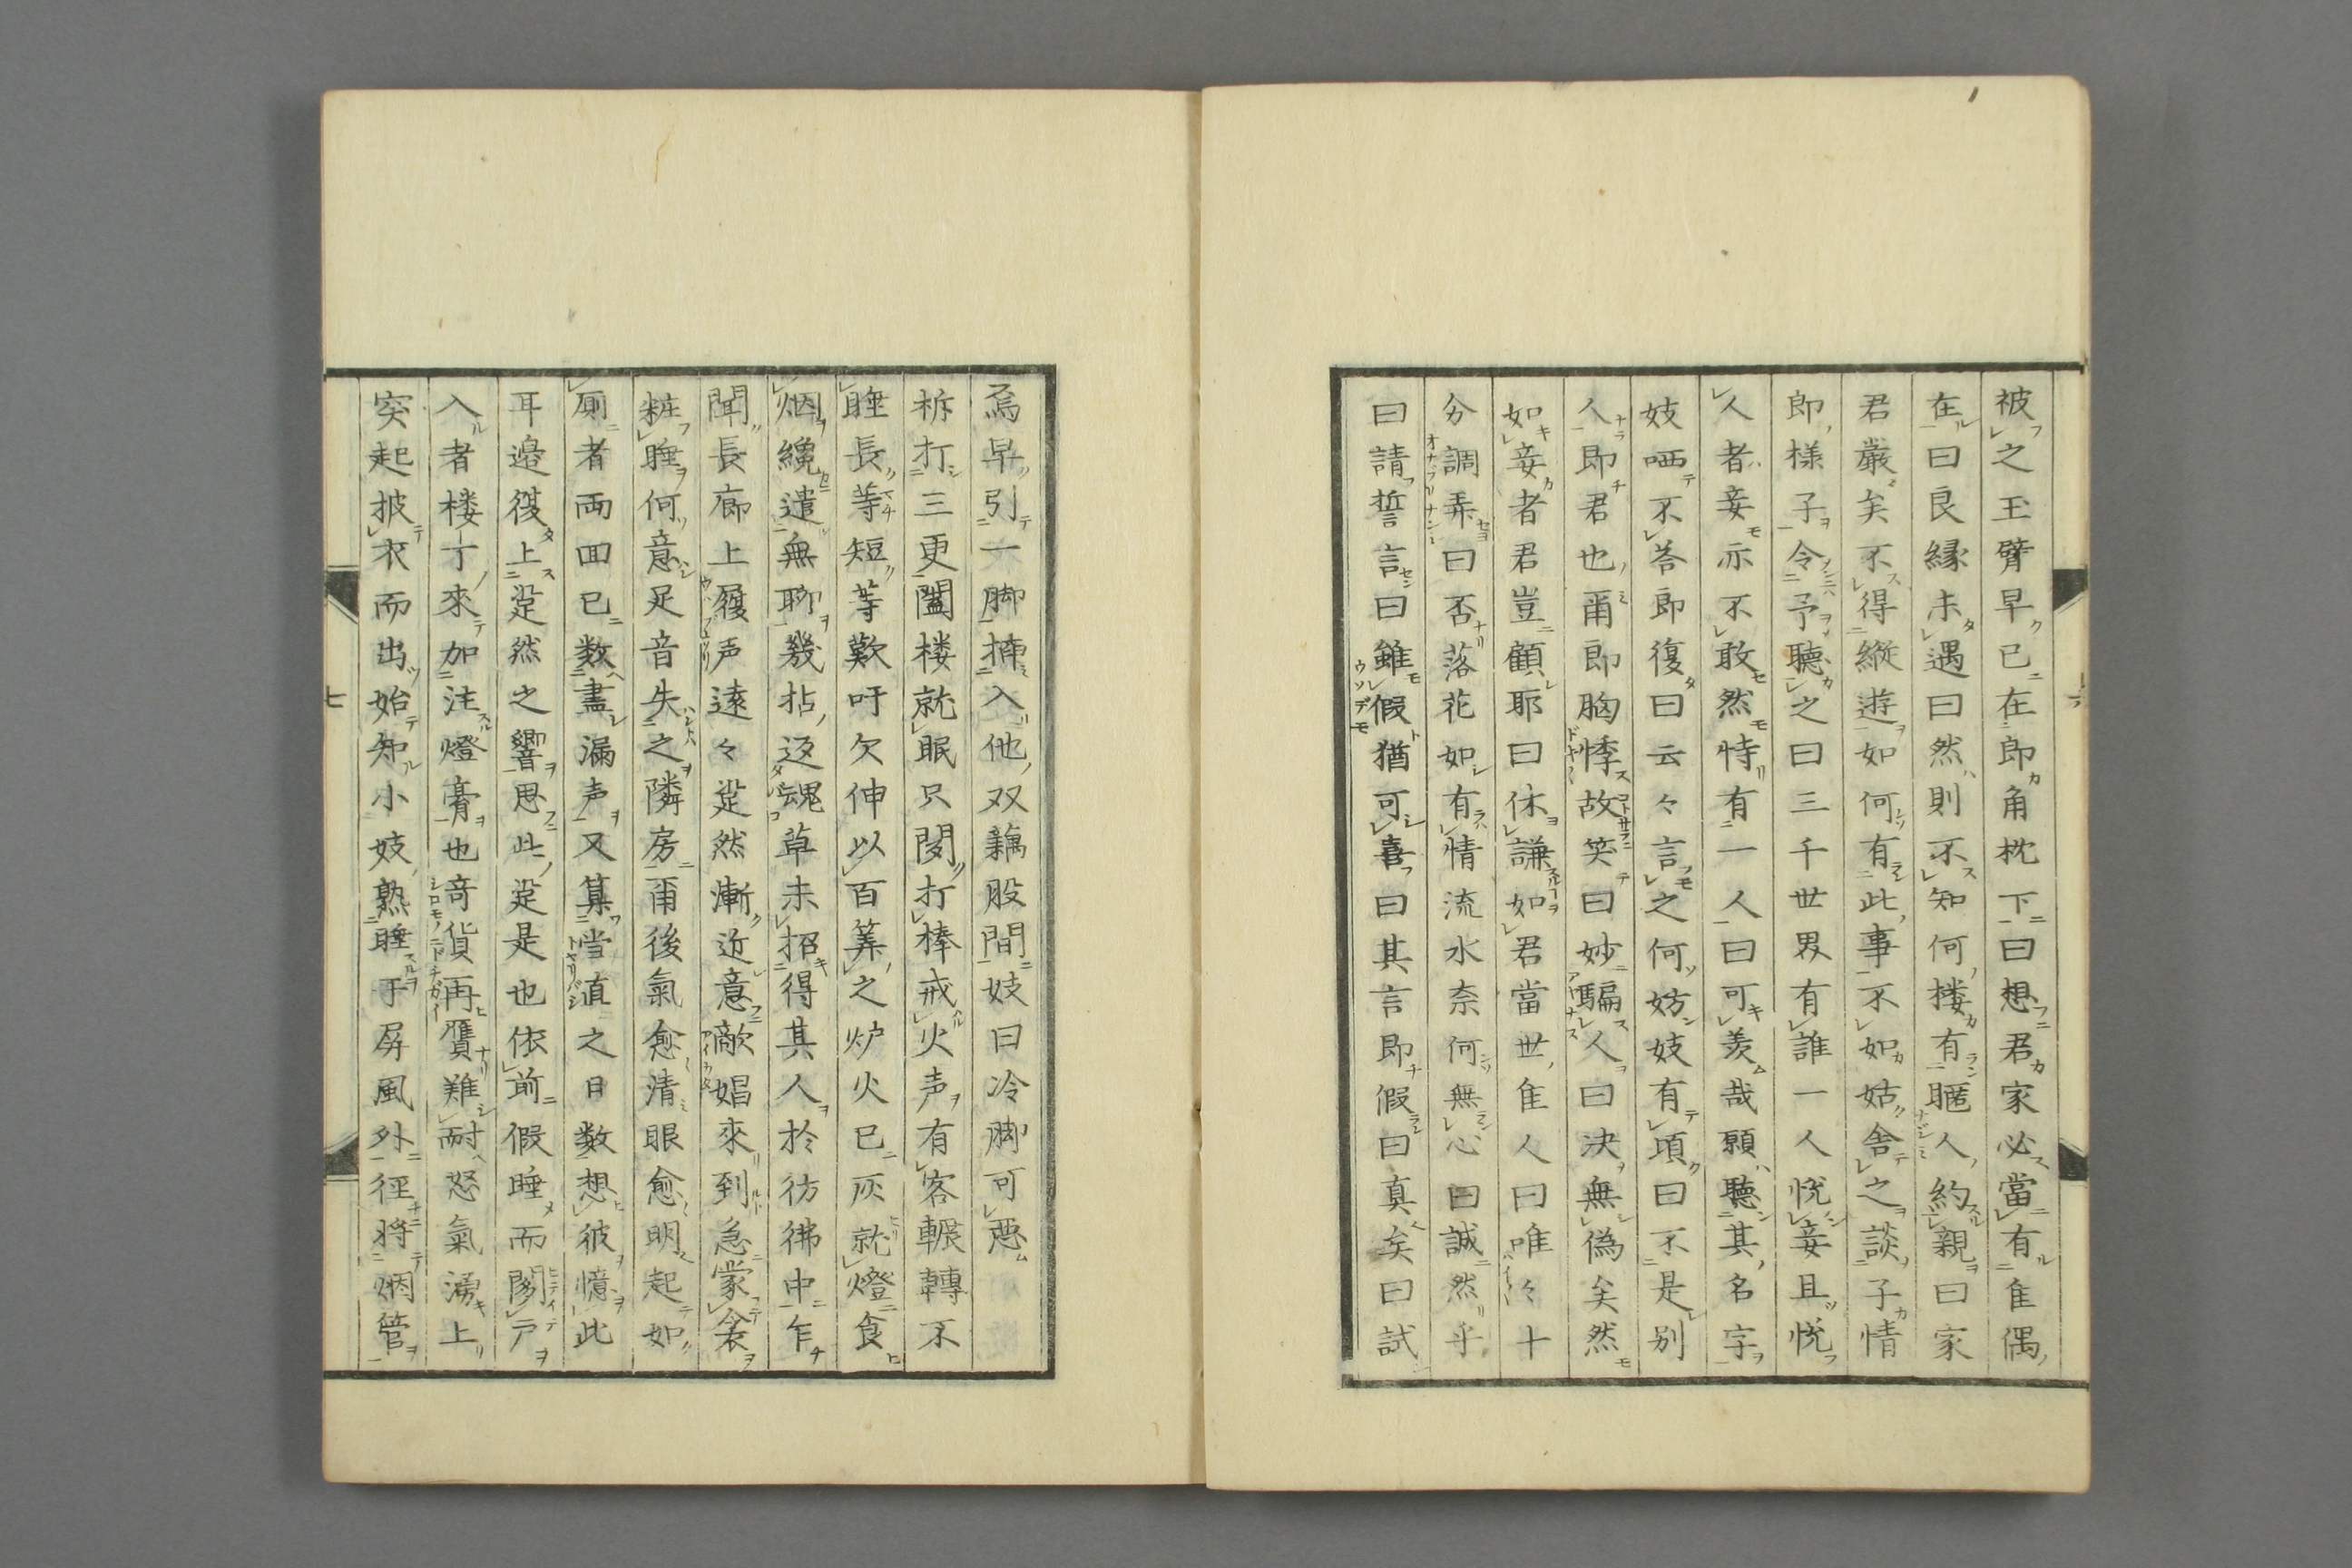 被之玉臂早已在郎角枕下曰想君家必當有隹偶
在曰良縁未遇曰然則不知何楼有暱人約親曰家
君嚴矣不得縦遊如何有此事不如姑舎之談子情
郎様子令予聴之曰三千世界有誰一人悦妾且悦
人者妾亦不敢然恃有一人曰可羨哉願聴其名字
妓哂不荅郎復曰云々言之何妨妓有頃曰不是别
人即君也爾郎胸悸故笑曰妙騙人曰決無偽矣然
如妾者君豈顧耶曰休謙如君當世隹人曰唯々十
分調弄曰否落花如有情流水奈何無心曰誠然乎
曰請誓言曰雖假猶可喜曰其言即假曰真矣曰試
為早引一脚揷入他双藕股間妓曰冷脚可惡
柝打三更闔楼就眠只聞打棒戒火声有客輾轉不
睡長等短等歎吁欠伸以百筭之炉火已灰就燈食
烟纔遣無聊幾拈返魂草未招得其人於彷彿中乍
聞長廊上履声遠々跫然漸近意敵娼來到急蒙衾
粧睡何意足音失之隣房爾後氣愈清眼愈明起如
厠者両囬已数盡漏声又算当直之日数想彼憶此
耳邉復上跫然之響思此跫是也依前假睡而闖戸
入者楼丁來加注燈膏也竒貨再贋難耐怒氣湧上
突起披衣而出始知小妓熟睡于屏風外徑将烟管
七